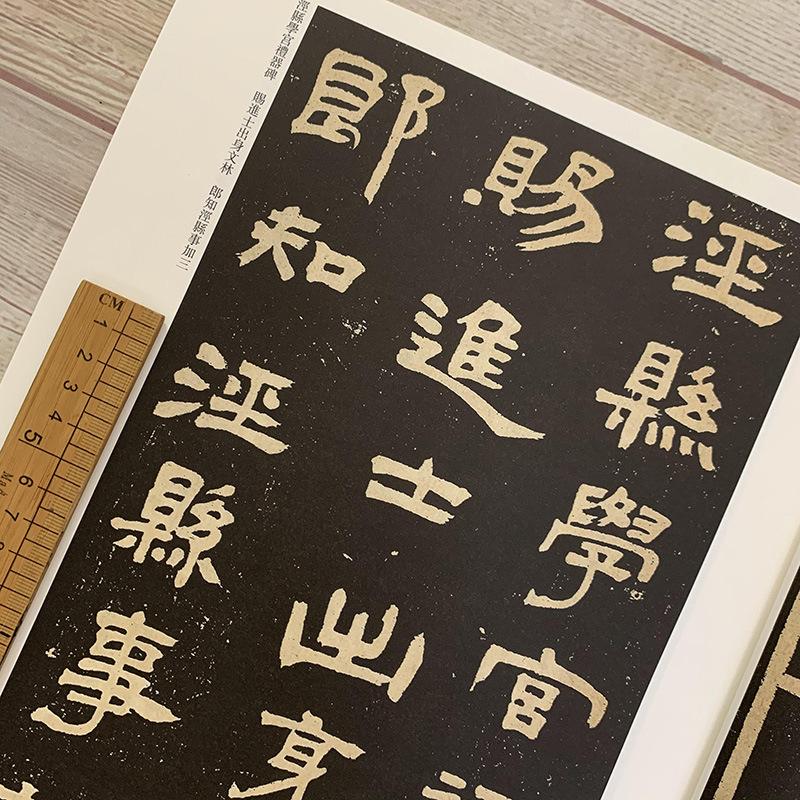 涇縣學宮
賜進士出身
郎知涇縣事
涇縣學宮禮器碑 賜進士出身文林 郎知涇縣事加三
CM
1 2 3 4 5 6 7 8